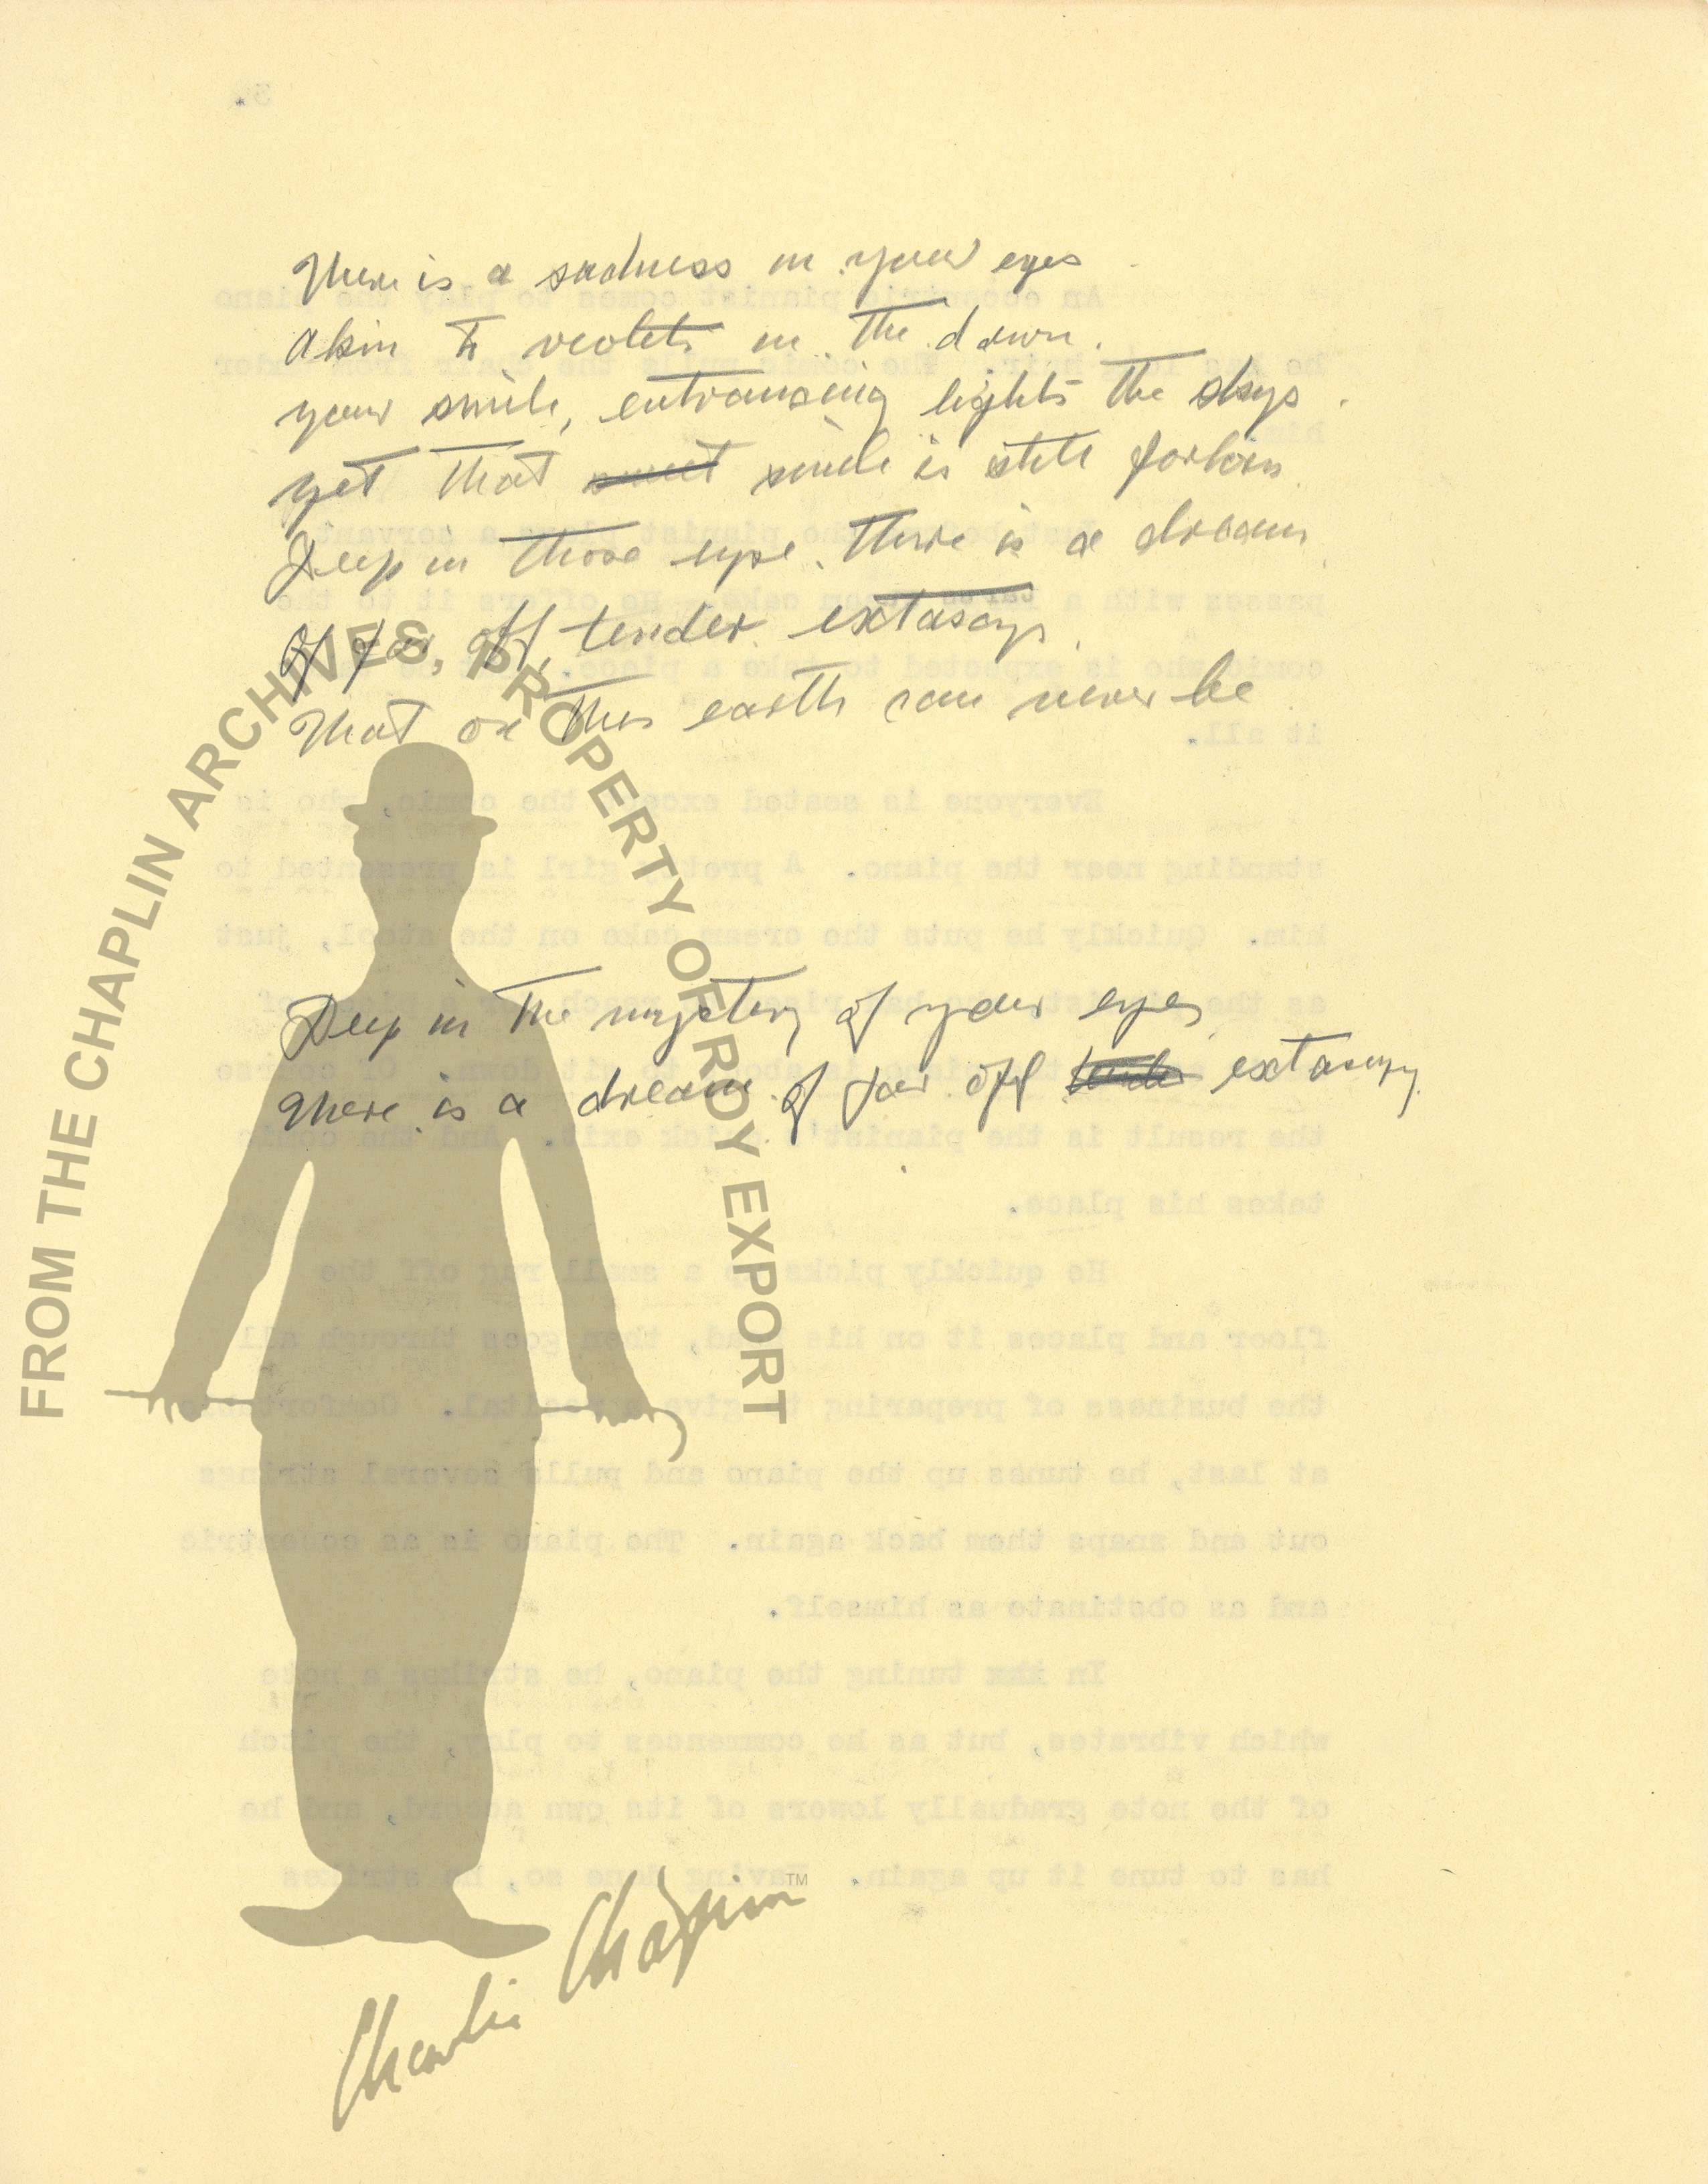 There is a sadness in your eyes
Akin to violets in the dawn.
your smile, entrancing lights the skys
yet that sweet smile is still forlorn
Deep in those eyes. There is a dream
Of far, off, tender extasy
That on this earth can never be
Deep in the mystery of your eyes
There is a dream of far off tender extasy
FROM THE CHAPLIN ARCHIVES, PROPERTY OF ROY EXPORT
Charlie Chaplin™
3.
An eccentric pianist comes to play the piano
he has long hair. The comic pulls the chair from under
him
the pianist a servant
passes with a large cream cake. He offers it to the
comic who is expected to take a piece,
it all.
Everyone is seated except the comic, who is
standing near the piano. A pretty girl is presented to
him. Quickly he puts the cream cake on the stool, just
as the of
the is about to sit down. Of course
the result is the pianist's quick exit. And the comic
takes his place.
He quickly picks up a small rug off the
floor and places it on his head, then goes through all
the business of preparing to give a recital. Comfortable
at last, he tunes up the piano and pulls several strings
out and snaps them back again. The piano is as eccentric
and as obstinate as himself.
In tuning the piano, he strikes a note
which vibrates, but as he commences to play, the pitch
of the note gradually lowers of its own accord, and he
has to tune it up again. Having done so, he strikes